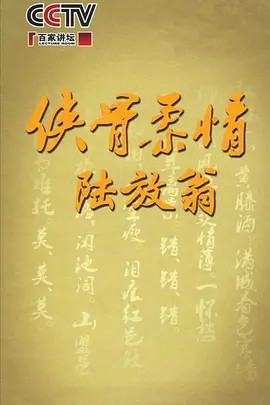 CCTV
百家讲坛
LECTURE ROOM
侠骨柔情
陆放翁
黄滕酒 满城春色宫墙
情薄。一怀愁
错、错、错。
瘦 泪痕红浥
闲池阁。山盟
难托、莫、莫、莫。